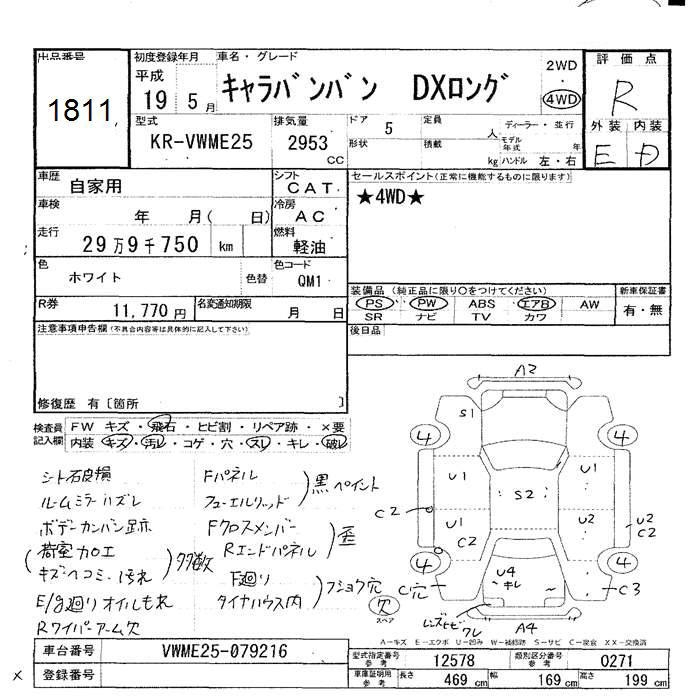 出品番号
1811
初度登録年月
平成
19 5 月
車名・グレード
キャラバンバン DXロング
2WD
・
4WD
評価点
R
外装 内装
E D
型式
KR-VWME25
排気量
2953
CC
ドア 5
定員 人
ディーラー・並行
形状
積載 kg
モデル年式 年
ハンドル 左・右
車歴
自家用
シフト
CAT
セールスポイント(正常に機能するものに限ります)
★4WD★
車検
年 月( 日)
冷房
AC
走行
29万9千750 km
燃料
軽油
色
ホワイト
色替
色コード
QM1
装備品(純正品に限り○をつけてください)
PS PW ABS エアB AW
SR ナビ TV カワ
新車保証書
有・無
R券
11,770 円
名変通知期限
月 日
後日品
注意事項申告欄(不具合内容等は具体的に記入して下さい)
修復歴 有〔箇所 〕
検査員記入欄
FW キズ・飛石・ヒビ割・リペア跡・×要
内装 キズ・汚レ・コゲ・穴・スレ・キレ・破レ
シート破損
ルームミラーハズレ
ボデーカンバン跡
荷室加工
キズ・ヘコミ・汚れ
タタ数
E/g廻りオイルもれ
Rワイパーアーム欠
Fパネル
フューエルリッド
黒ペイント
Fクロスメンバー
Rエンドパネル
歪
F廻り
タイヤハウス内
フショウ穴
欠
スペア
A2
S1
4 4
U1 U1
S2
C2
U1 C2
U2
U2 C2
4 4
C穴
U4
キレ
C3
レンズヒビ
ワレ
A4
A-キズ E-エクボ U-凹み W-補修跡 S-サビ C-腐食 XX-交換済
車台番号
VWME25-079216
型式指定番号 参考
12578
類別区分番号 参考
0271
× 登録番号
車庫証明用 参考
長さ 469 cm 幅 169 cm 高さ 199 cm